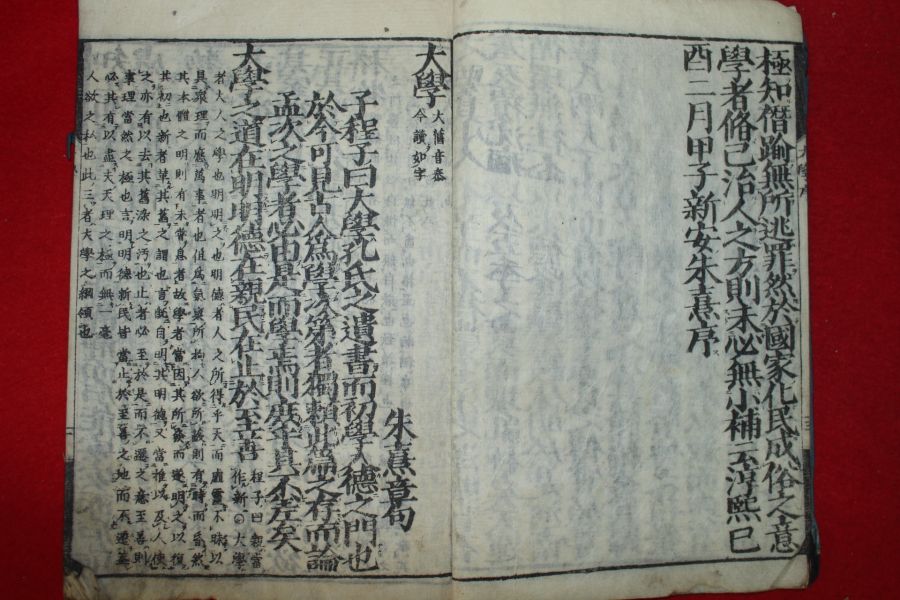 極知僭踰無所逃罪然於國家化民成俗之意
學者脩己治人之方則未必無小補云淳熙己
酉二月甲子新安朱熹序
大學 大舊音泰
今讀如字
朱熹章句
子程子曰大學孔氏之遺書而初學入德之門也
於今可見古人爲學次第者獨賴此篇之存而論
孟次之學者必由是而學焉則庶乎其不差矣
大學之道在明明德在親民在止於至善 程子曰親當
作新○大學
者大人之學也明明之也明德者人之所得乎天而虛靈不昧以
具衆理而應萬事者也但爲氣稟所拘人欲所蔽則有時而昏然
其本體之明則有未嘗息者故學者當因其所發而遂明之以復
其初也新者革其舊之謂也言旣自明其明德又當推以及人使
之亦有以去其舊染之汚也止者必至於是而不遷之意至善則
事理當然之極也言明明德新民皆當止於至善之地而不遷蓋
必其有以盡夫天理之極而無一毫
人欲之私也此三者大學之綱領也